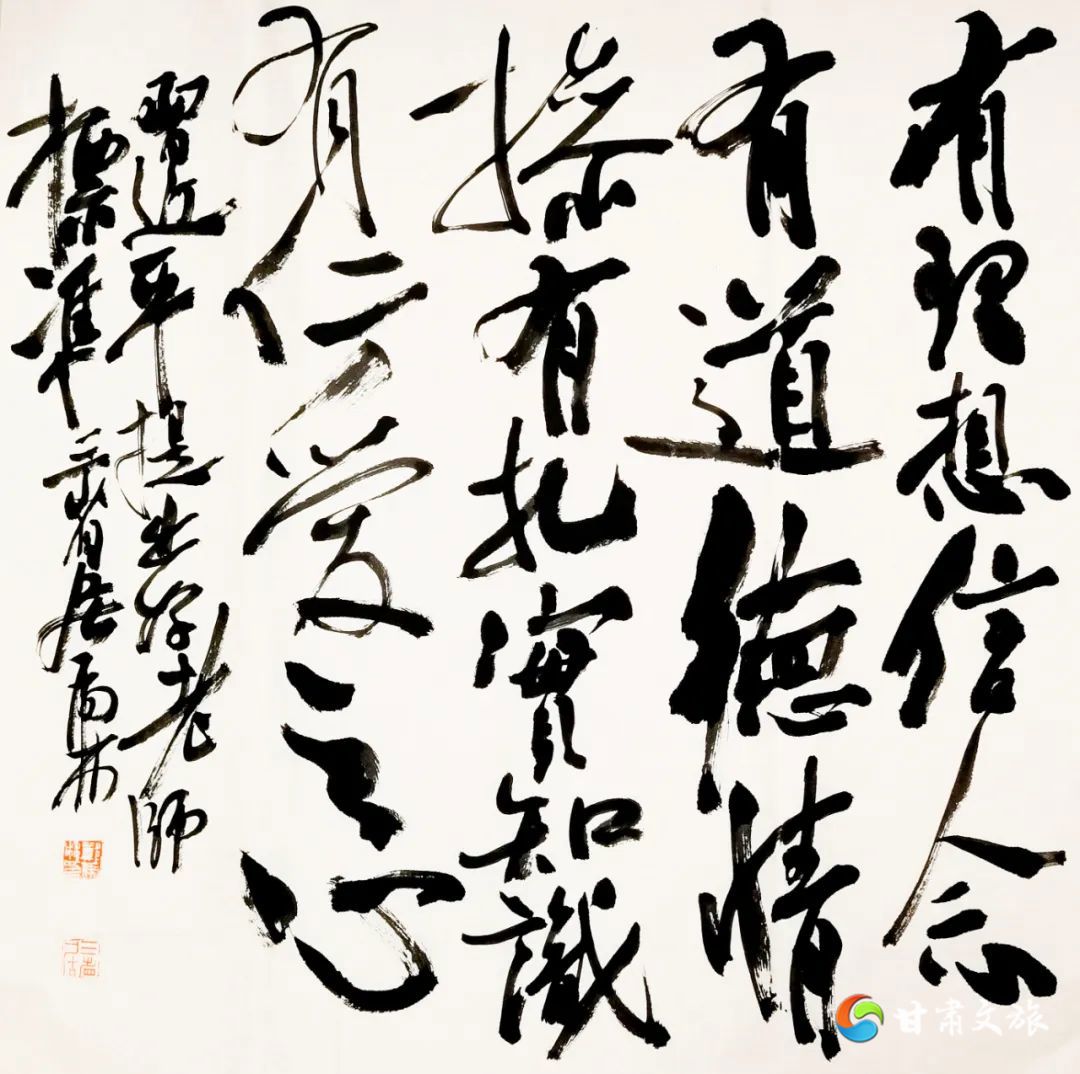 有理想信念
有道德情
操有扎實知識
有仁愛之心
習近平提出好老師
標準
甘肃文旅